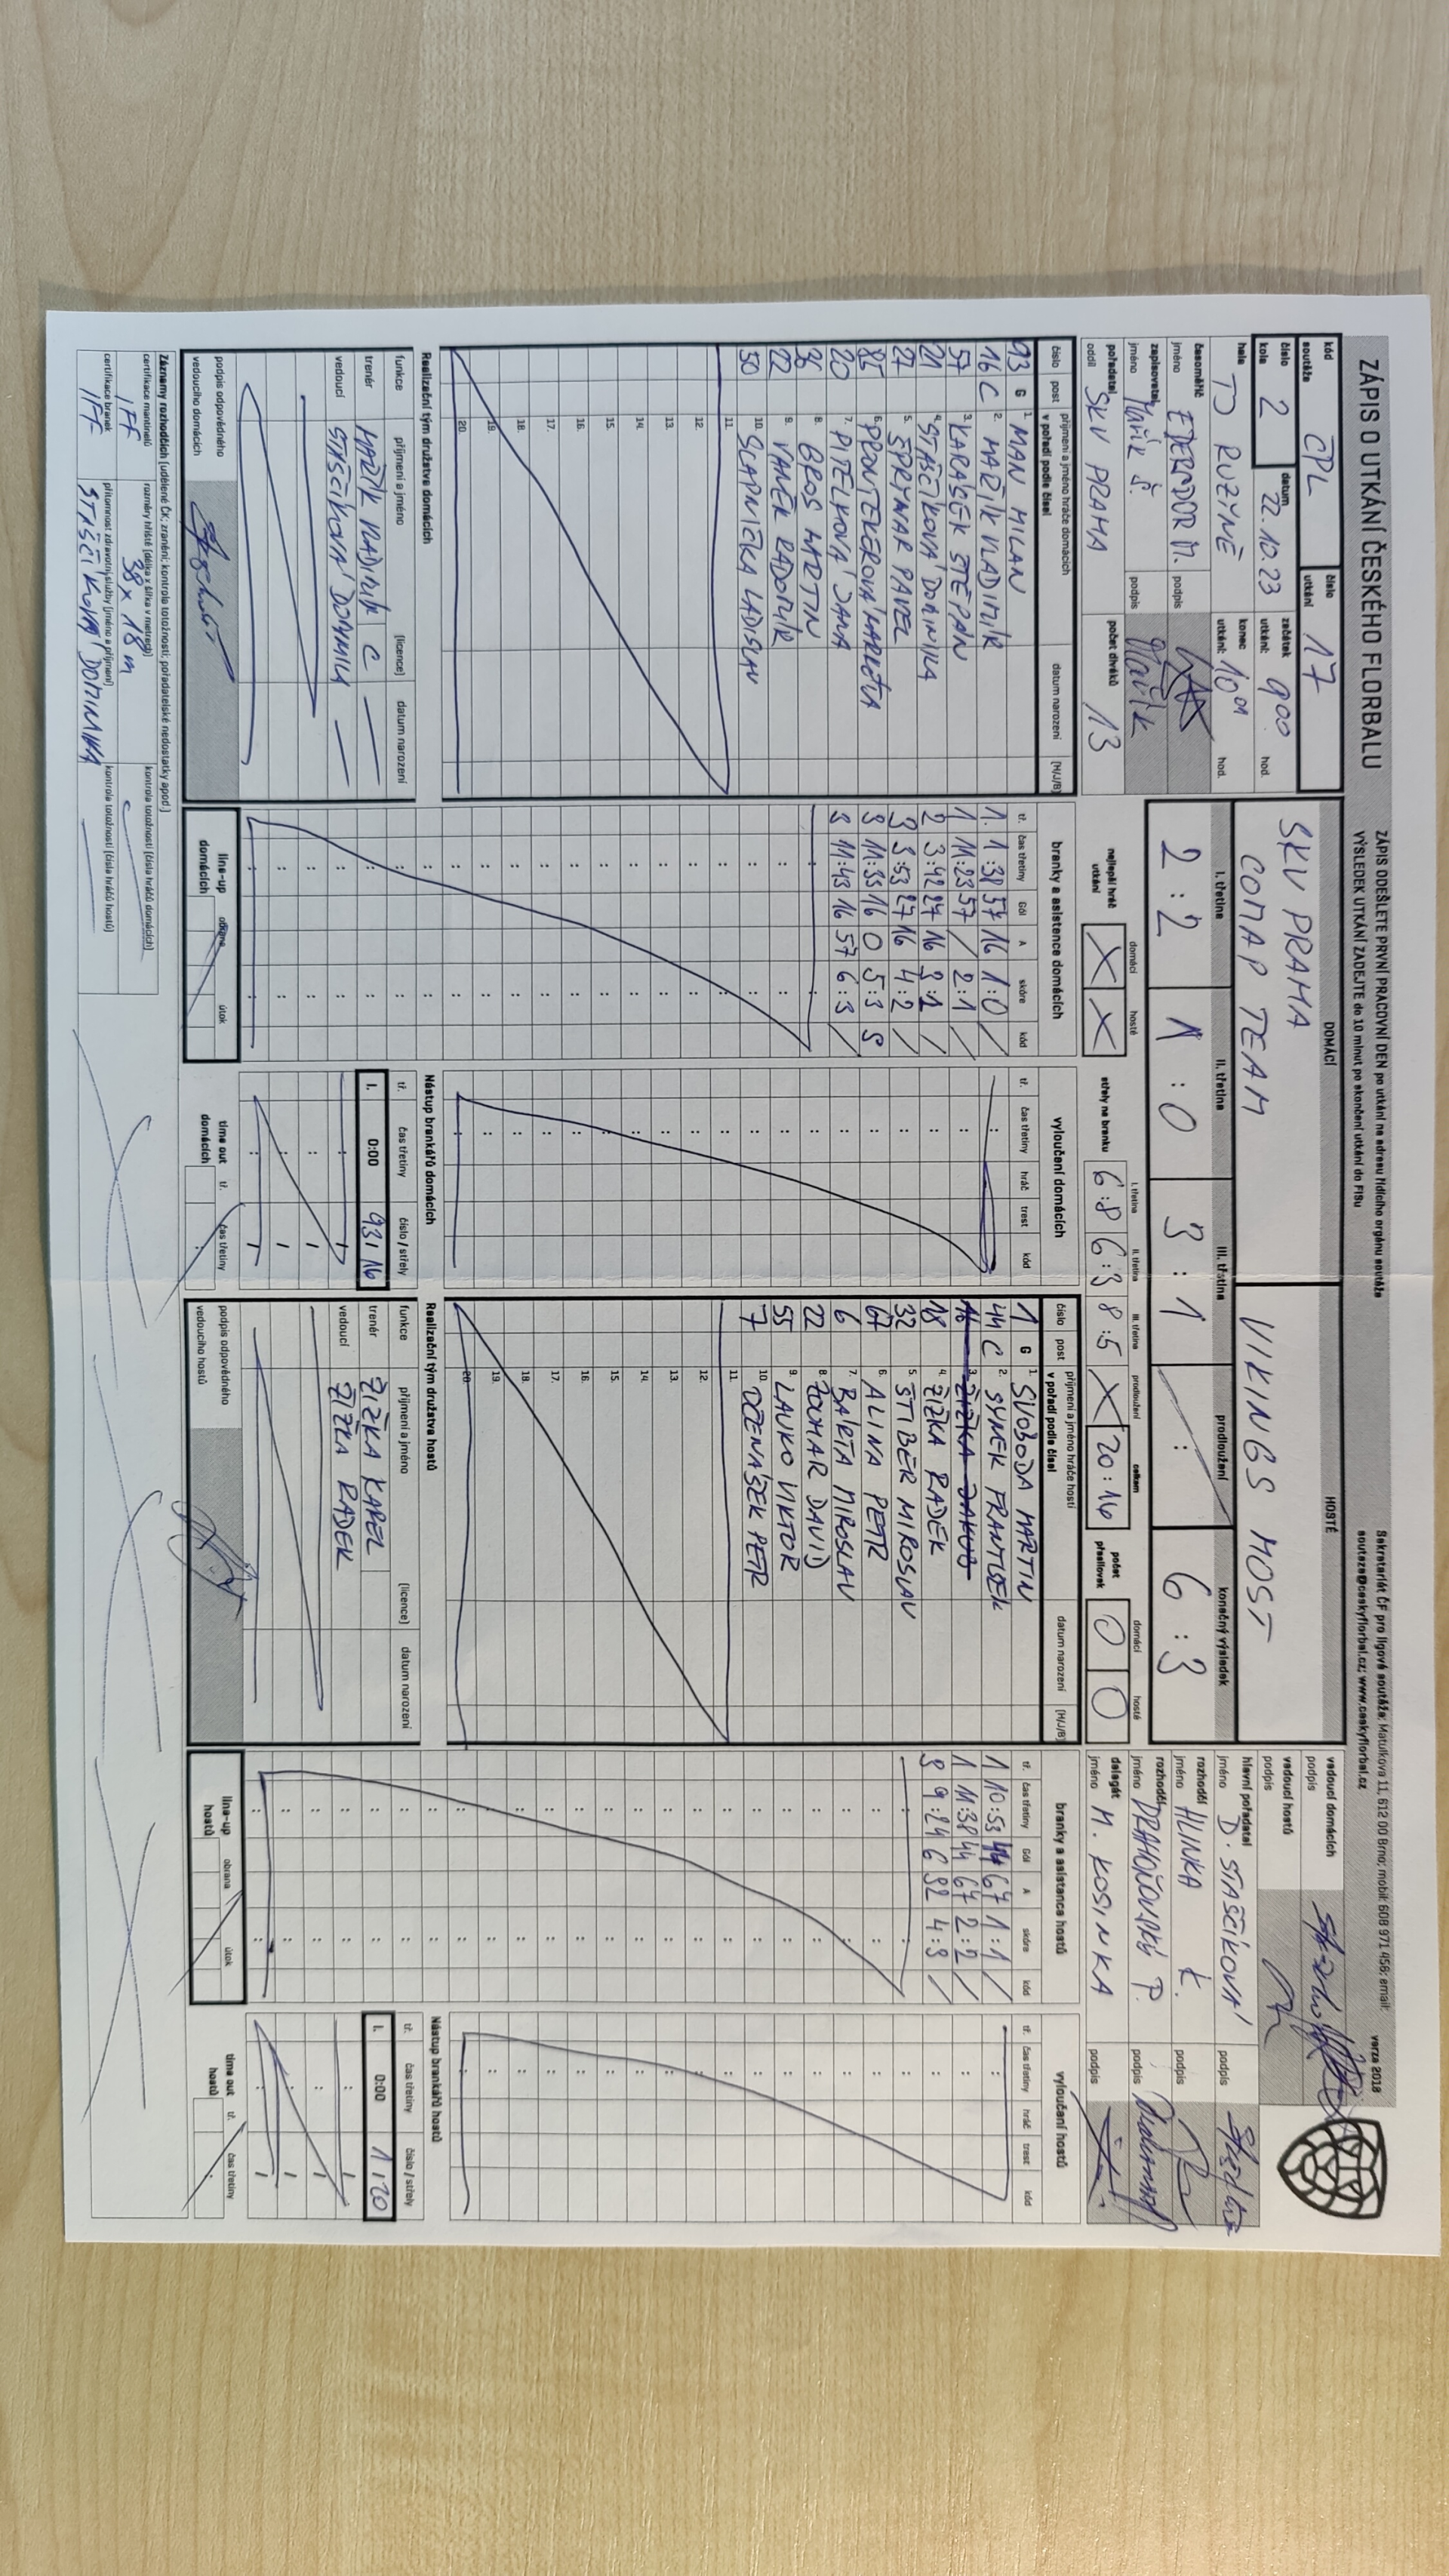 ZÁPIS O UTKÁNÍ ČESKÉHO FLORBALU
ZÁPIS ODEŠLETE PRVNÍ PRACOVNÍ DEN po utkání na adresu řídícího orgánu soutěže
VÝSLEDEK UTKÁNÍ ZADEJTE do 10 minut po skončení utkání do FISu
Sekretariát ČF pro ligové soutěže: Matulkova 11, 612 00 Brno; mobil: 608 971 458; email:
souteze@ceskyflorbal.cz; www.ceskyflorbal.cz
verze 2018
kód soutěže CPL číslo utkání 17
číslo kola 2 datum 22.10.23 začátek utkání: 9 00 hod.
hala TJ RUZYNĚ konec utkání: 10 01 hod.
časoměřič jméno EDERADOR M. podpis
zapisovatel jméno Mařík Š. podpis Mařík
pořadatel oddíl SKV PRAHA počet diváků 13
DOMÁCÍ
SKV PRAHA
COMAP TEAM
HOSTÉ
VIKINGS MOST
I. třetina II. třetina III. třetina prodloužení konečný výsledek
2 : 2 1 : 0 3 : 1 : 6 : 3
nejlepší hráč utkání domácí X hosté X
střely na branku I. třetina 6:8 II. třetina 6:3 III. třetina 8:5 prodloužení X celkem 20:16
počet přesilovek domácí 0 hosté 0
vedoucí domácích podpis
vedoucí hostů podpis
hlavní pořadatel jméno D. STAŠČÍKOVÁ podpis
rozhodčí jméno HLINKA podpis
rozhodčí jméno P. podpis
delegát jméno M. KOSINKA podpis
číslo post příjmení a jméno hráče domácích v pořadí podle čísel datum narození (H/J/B)
93 G 1. MAN MILAN
16 C 2. MAŘÍK VLADIMÍR
57 3. KARÁSEK ŠTĚPÁN
21 4. STAŠČÍKOVÁ DOMINIKA
27 5. ŠPRYNAR PAVEL
85 6. MARKÉTA
20 7. PITELKOVÁ JANA
8. BROS MARTIN
22 9. VANĚK RADOMÍR
50 10. SLAPNIČKA LADISLAV
11.
12.
13.
14.
15.
16.
17.
18.
19.
20.
branky a asistence domácích
tř. čas třetiny Gól A skóre kód
1. 1:38 57 16 1:0 /
1 11:23 57 / 2:1 /
2 3:42 27 16 3:2 /
3 3:53 27 16 4:2 /
3 11:35 16 0 5:3 S
3 11:43 16 57 6:3 /
vyloučení domácích
tř. čas třetiny hráč trest kód
číslo post příjmení a jméno hráče hostí v pořadí podle čísel datum narození (H/J/B)
1 G 1. SVOBODA MARTIN
44 C 2. SYNEK FRANTIŠEK
16 3. ŽIŽKA JAKUB
18 4. ŽIŽKA RADEK
32 5. ŠTIBER MIROSLAV
67 6. ALINA PETR
6 7. BÁRTA MIROSLAV
22 8. DAVID
55 9. LAUKO VIKTOR
7 10. DŽENÁŠEK PETR
11.
12.
13.
14.
15.
16.
17.
18.
19.
20.
branky a asistence hostů
tř. čas třetiny Gól A skóre kód
1 10:53 44 67 1:1 /
1 11:38 44 67 2:2 /
3 9:24 6 32 4:3 /
vyloučení hostů
tř. čas třetiny hráč trest kód
Realizační tým družstva domácích
funkce příjmení a jméno (licence) datum narození
trenér MAŘÍK VLADIMÍR C
vedoucí STAŠČÍKOVÁ DOMINIKA
podpis odpovědného vedoucího domácích
line-up domácích obrana útok
Nástup brankářů domácích
tř. čas třetiny číslo / střely
I. 0:00 93/16
time out domácích tř. čas třetiny
Realizační tým družstva hostů
funkce příjmení a jméno (licence) datum narození
trenér ŽIŽKA KAREL
vedoucí ŽIŽKA RADEK
podpis odpovědného vedoucího hostů
line-up hostů obrana útok
Nástup brankářů hostů
tř. čas třetiny číslo / střely
I. 0:00 1/20
time out hostů tř. čas třetiny
Záznamy rozhodčích (udělené ČK; zranění; kontrola totožnosti; pořadatelské nedostatky apod.)
certifikace mantinelů IFF rozměry hřiště (délka x šířka v metrech) 38 x 18 m kontrola totožnosti (čísla hráčů domácích)
certifikace branek IFF přítomnost zdravotní služby (jméno a příjmení) STAŠČÍKOVÁ DOMINIKA kontrola totožnosti (čísla hráčů hostů)